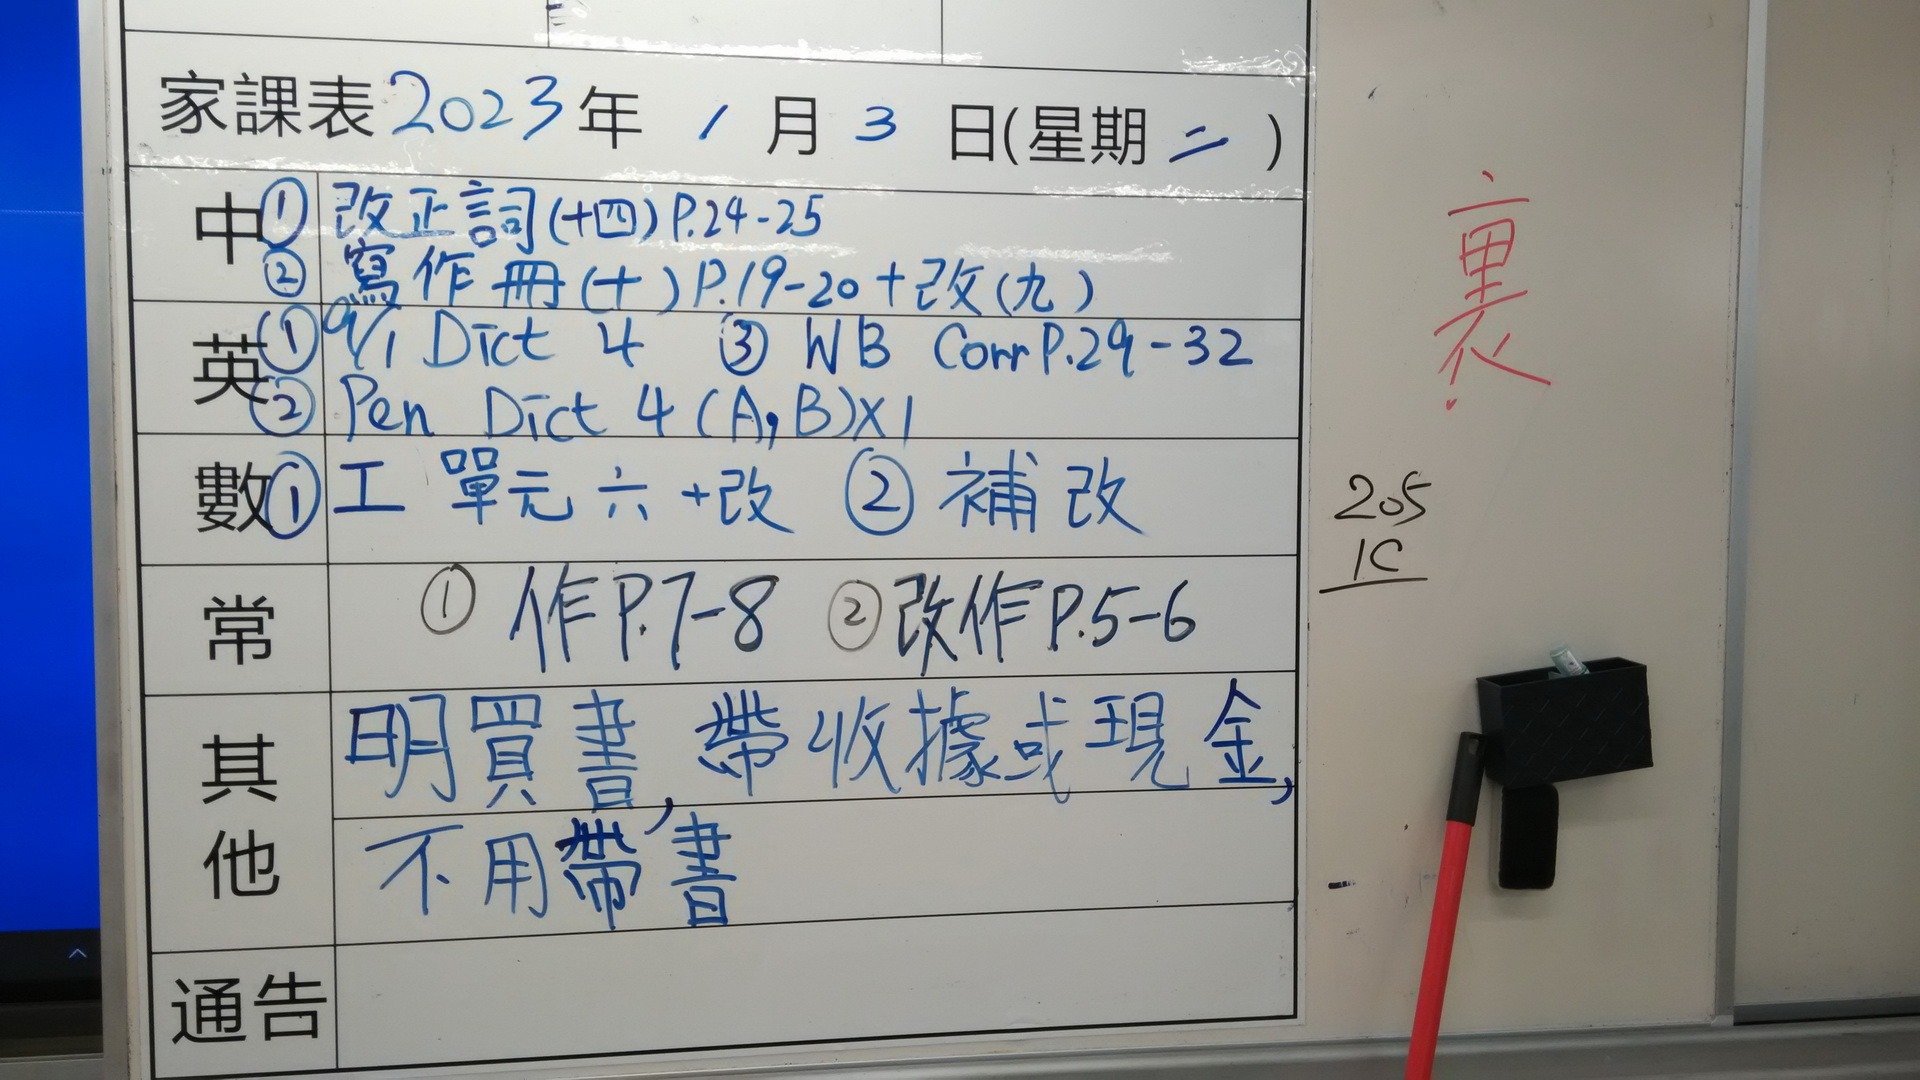 家課表2023年 1 月 3 日(星期 二 )
中 ① 改正詞(十四) P.24-25
② 寫作冊(十) P.19-20+改(九)
英 ① 9/1 Dict 4 ③ WB Corr P.29-32
② Pen Dict 4 (A,B)×1
數 ① 工 單元六 +改 ② 補改
常 ① 作P.7-8 ② 改作P.5-6
其他 明買書,帶收據或現金,
不用帶書
通告
裏
205
1C